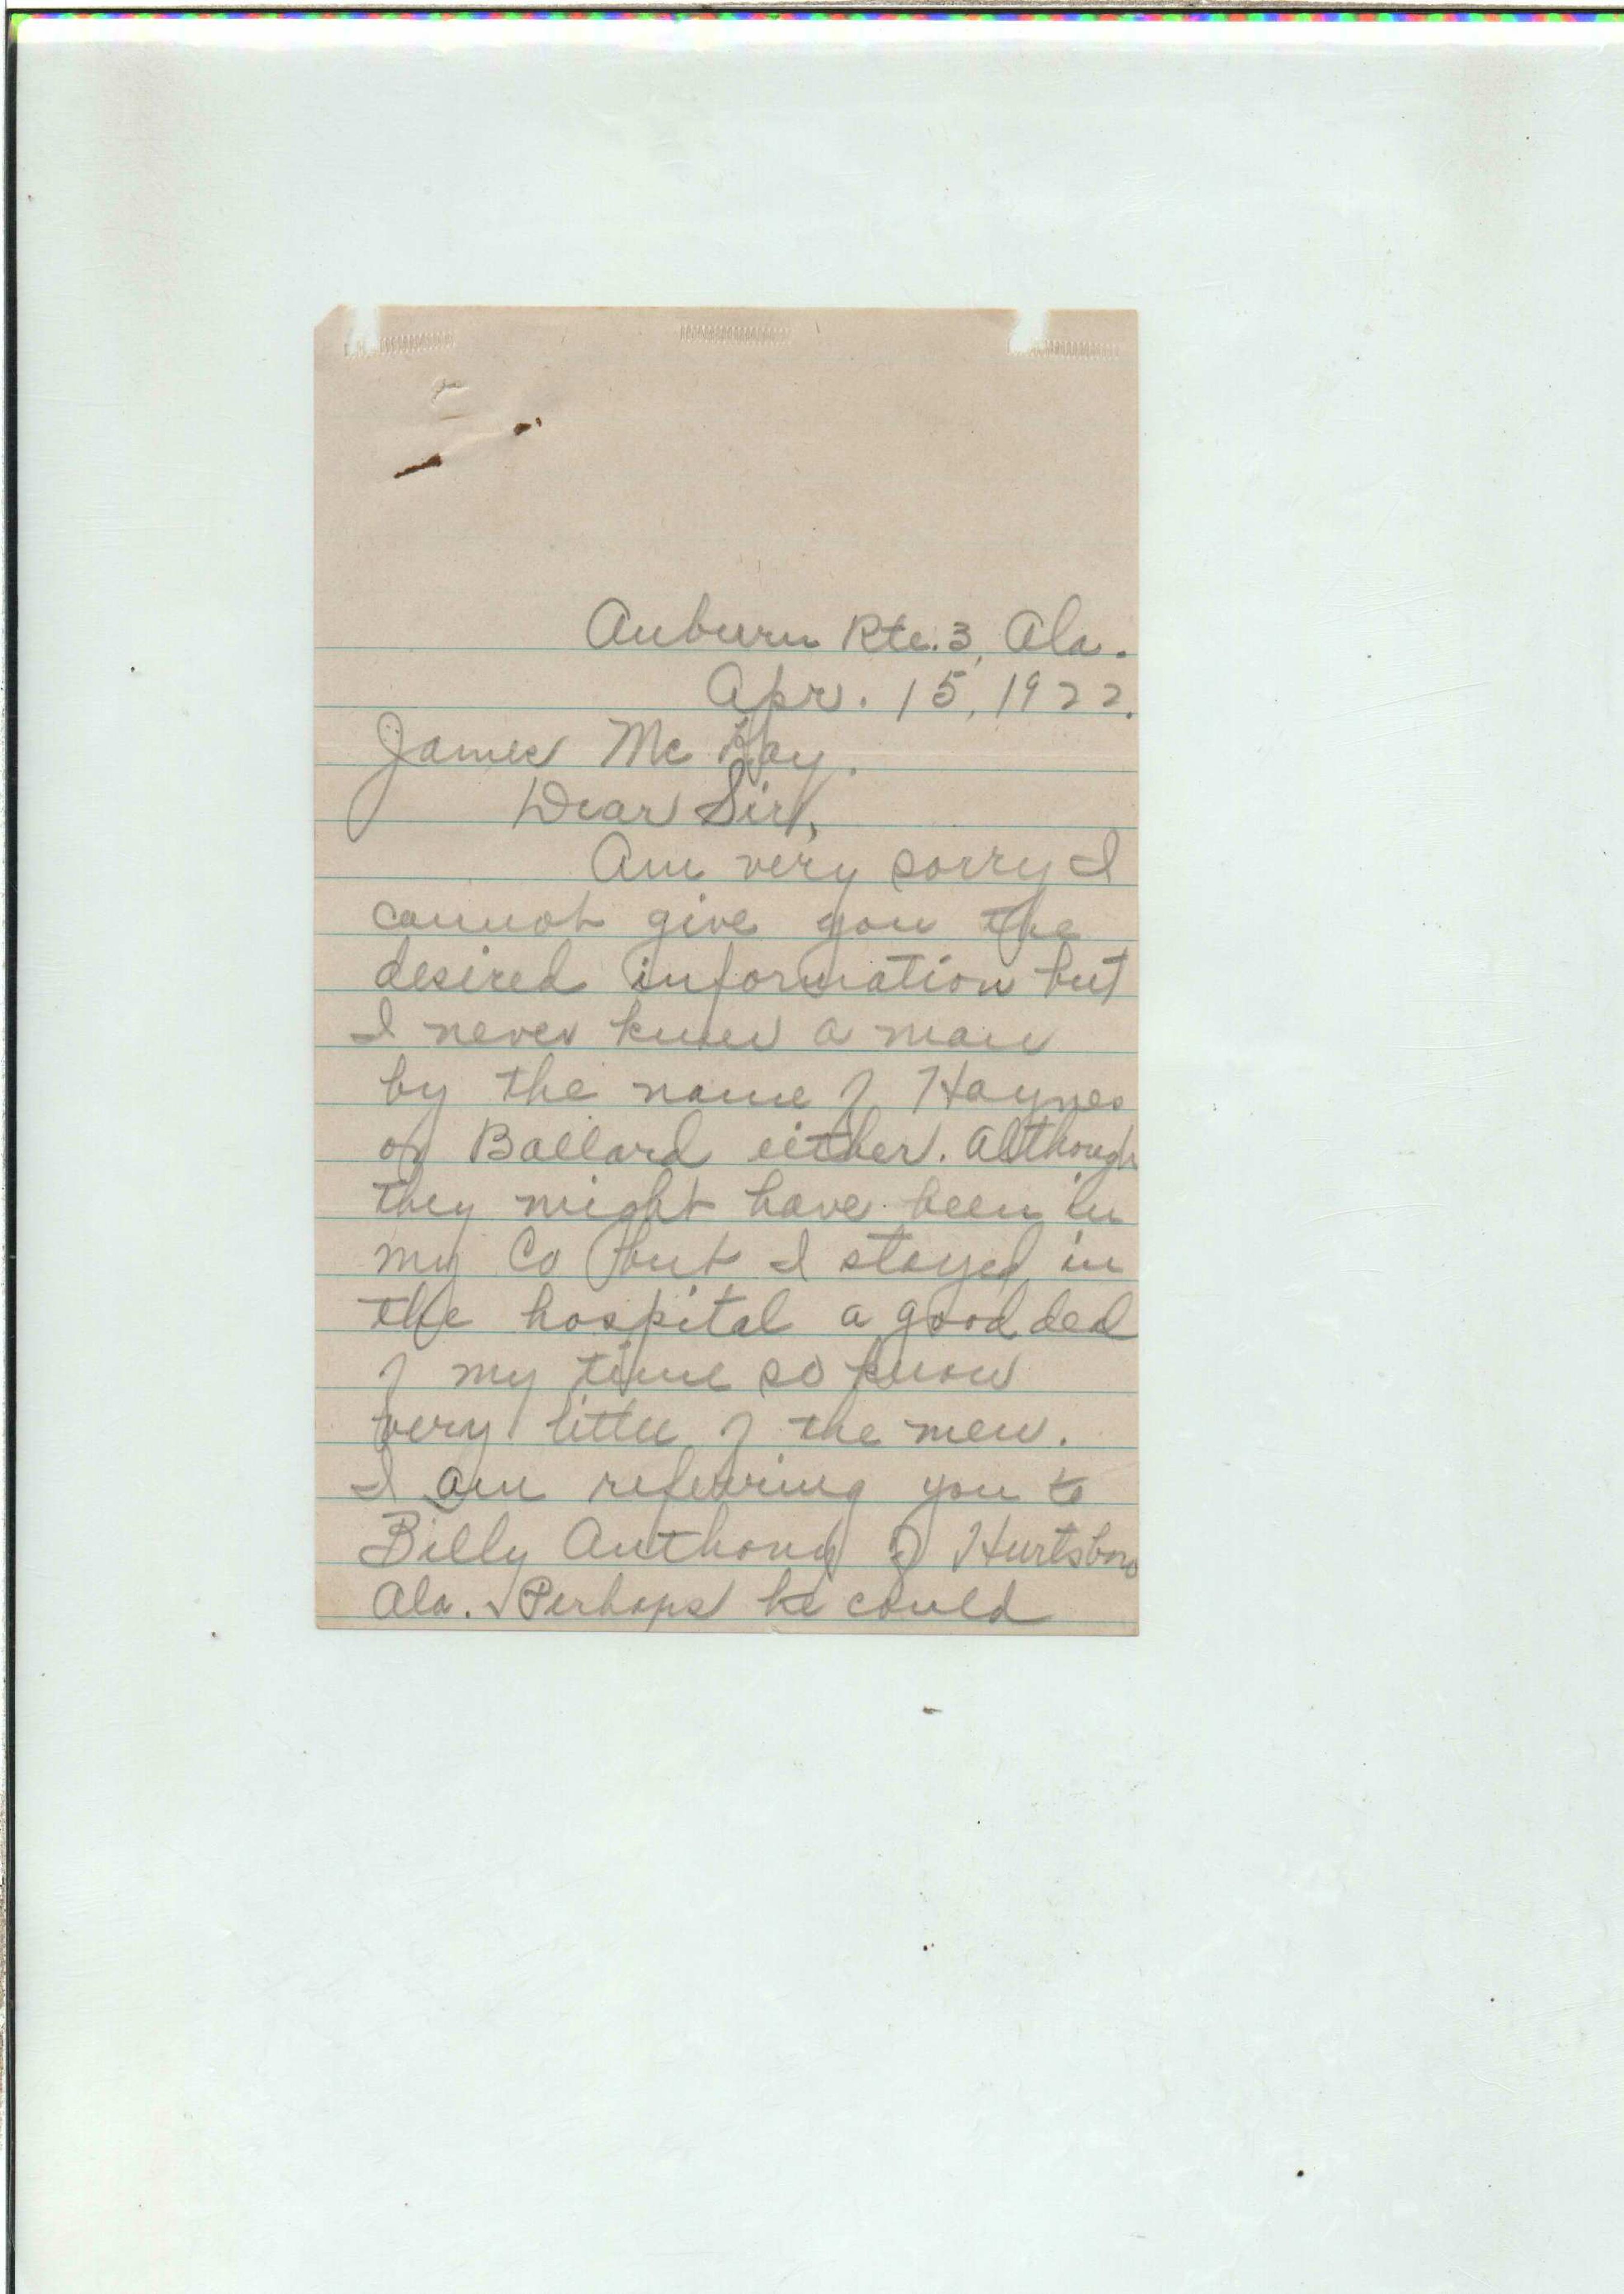 Auburn Rte. 3, Ala.
Apr. 15, 1922.
James Mc Kay.
Dear Sir,
Am very sorry I
cannot give you the
desired information but
I never knew a man
by the name of Haynes
or Ballard either. Although
they might have been in
my Co but I stayed in
the hospital a good deal
of my time so know
very little of the men.
I am referring you to
Billy Anthony of Hurtsboro
Ala. Perhaps he could